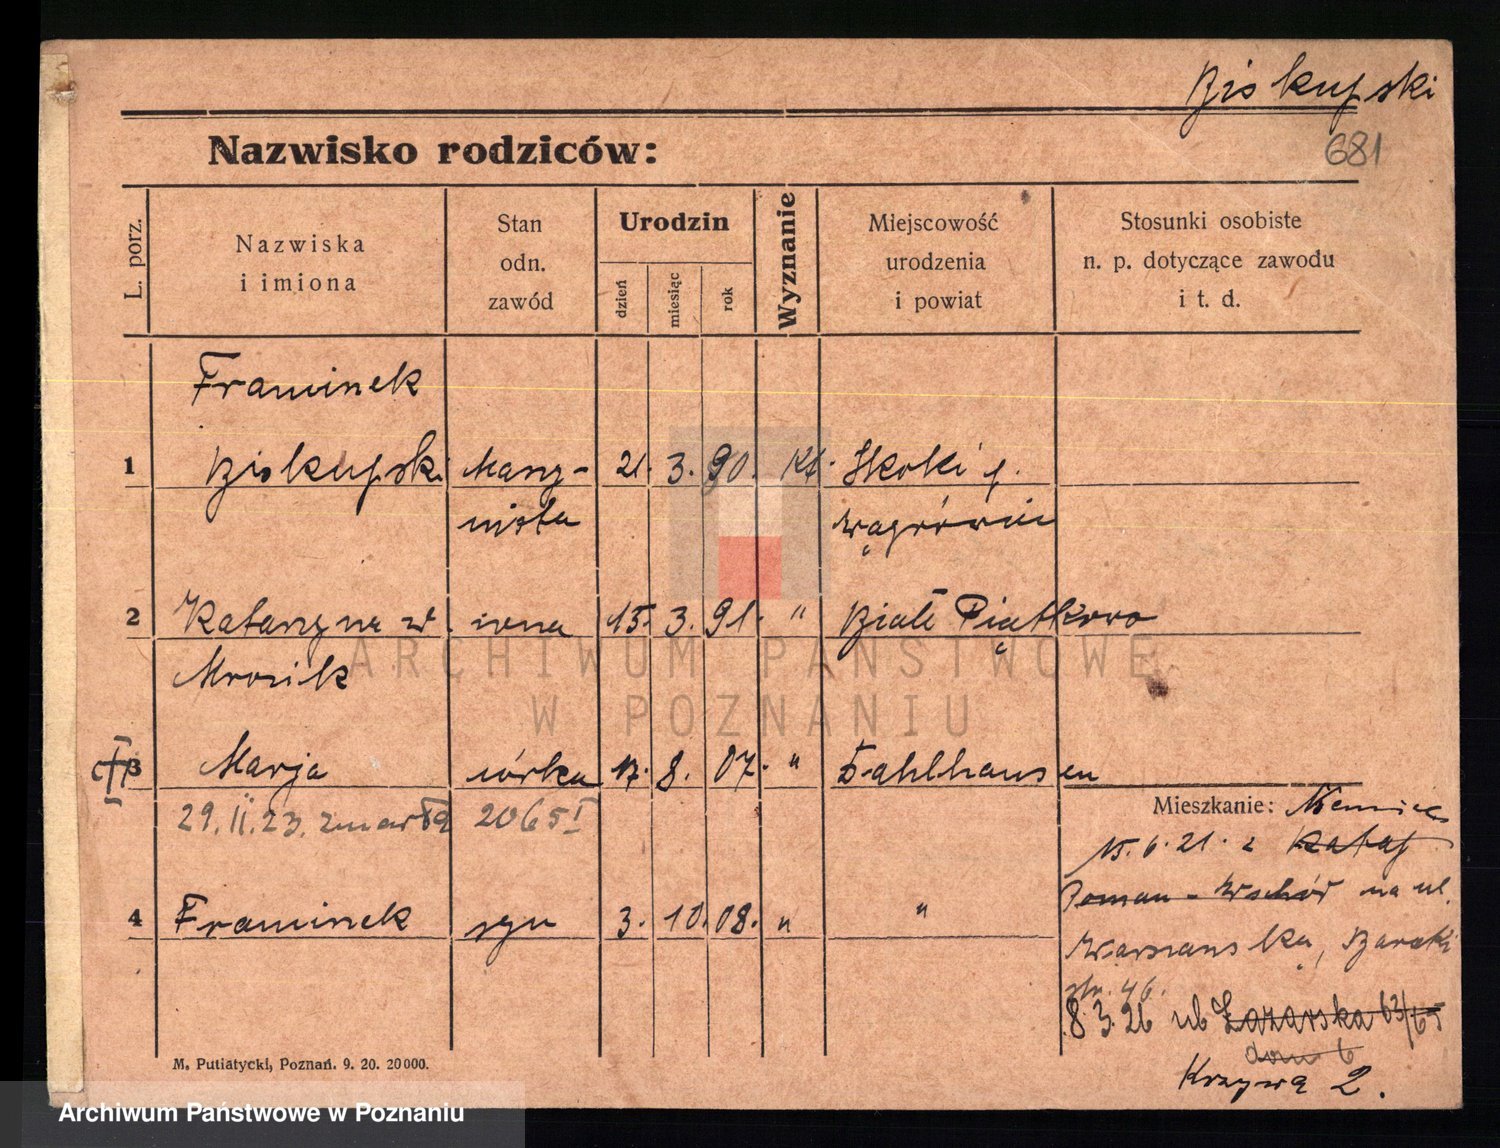 Biskupski
681
Nazwisko rodziców:
L. porz.
Nazwiska
i imiona
Stan
odn.
zawód
Urodzin
dzień
miesiąc
rok
Wyznanie
Miejscowość
urodzenia
i powiat
Stosunki osobiste
n. p. dotyczące zawodu
i t. d.
Franciszek
1 Biskupski Maszy- 21. 3. 90. Kt. Skoki p.
nista Wągrówiec
2 Katarzyna z żona 15. 3. 91. " Białe Piątkowo
Mrozik
3 Marja córka 17. 8. 07. " Dahlhausen
29. II. 23. zmarła 2065 I
Mieszkanie: Niemiec
15. 6. 21. z
Poznań - Wschód na ul.
Warszawska, Baraki
4 Franciszek syn 3. 10. 08. " "
str. 46.
8. 3. 26 ul Łazarska 63/65
dom 6
Krzywa 2.
M. Putiatycki, Poznań. 9. 20. 20000.
ARCHIWUM PAŃSTWOWE
W POZNANIU
Archiwum Państwowe w Poznaniu